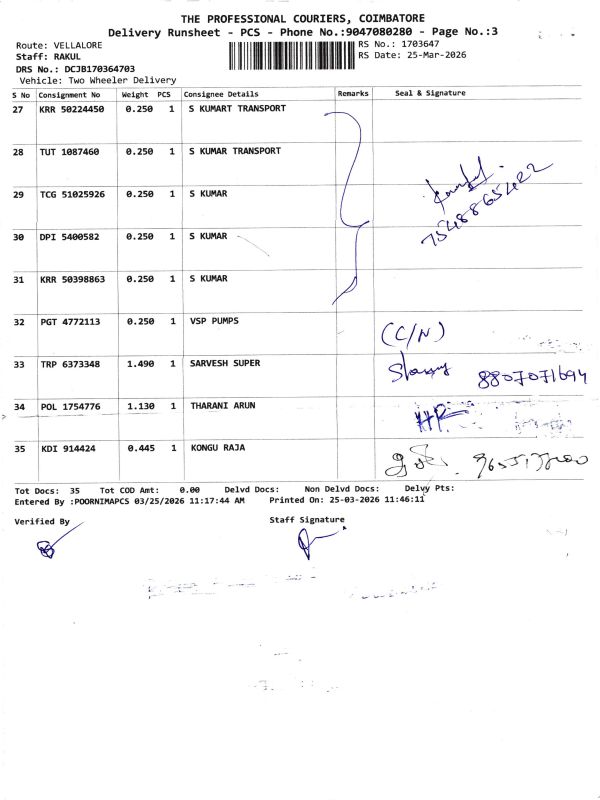 THE PROFESSIONAL COURIERS, COIMBATORE
Delivery Runsheet - PCS - Phone No.:9047080280 - Page No.:3
Route: VELLALORE
RS No.: 1703647
Staff: RAKUL
RS Date: 25-Mar-2026
DRS No.: DCJB170364703
Vehicle: Two Wheeler Delivery
S No Consignment No Weight PCS Consignee Details Remarks Seal & Signature
27 KRR 50224450 0.250 1 S KUMART TRANSPORT
28 TUT 1087460 0.250 1 S KUMAR TRANSPORT
29 TCG 51025926 0.250 1 S KUMAR
7548865422
30 DPI 5400582 0.250 1 S KUMAR
31 KRR 50398863 0.250 1 S KUMAR
32 PGT 4772113 0.250 1 VSP PUMPS
(C/N)
33 TRP 6373348 1.490 1 SARVESH SUPER
8807071694
34 POL 1754776 1.130 1 THARANI ARUN
35 KDI 914424 0.445 1 KONGU RAJA
Tot Docs: 35 Tot COD Amt: 0.00 Delvd Docs: Non Delvd Docs: Delvy Pts:
Entered By :POORNIMAPCS 03/25/2026 11:17:44 AM Printed On: 25-03-2026 11:46:11
Verified By
Staff Signature